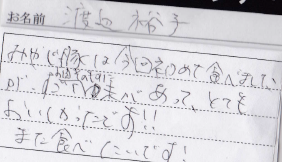 お名前 渡辺裕子
みやじ豚は今回初めて食べました
が、すごく味があって、とても
おいしかったです!!
また食べたいです!